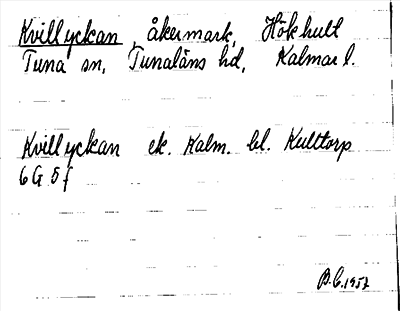 Kvillyckan, åkermark, Hökhult
Tuna sn, Tunaläns hd, Kalmar l.
Kvillyckan ek. Kalm. bl. Hulttorp
6 G 5 f
B.C. 1957